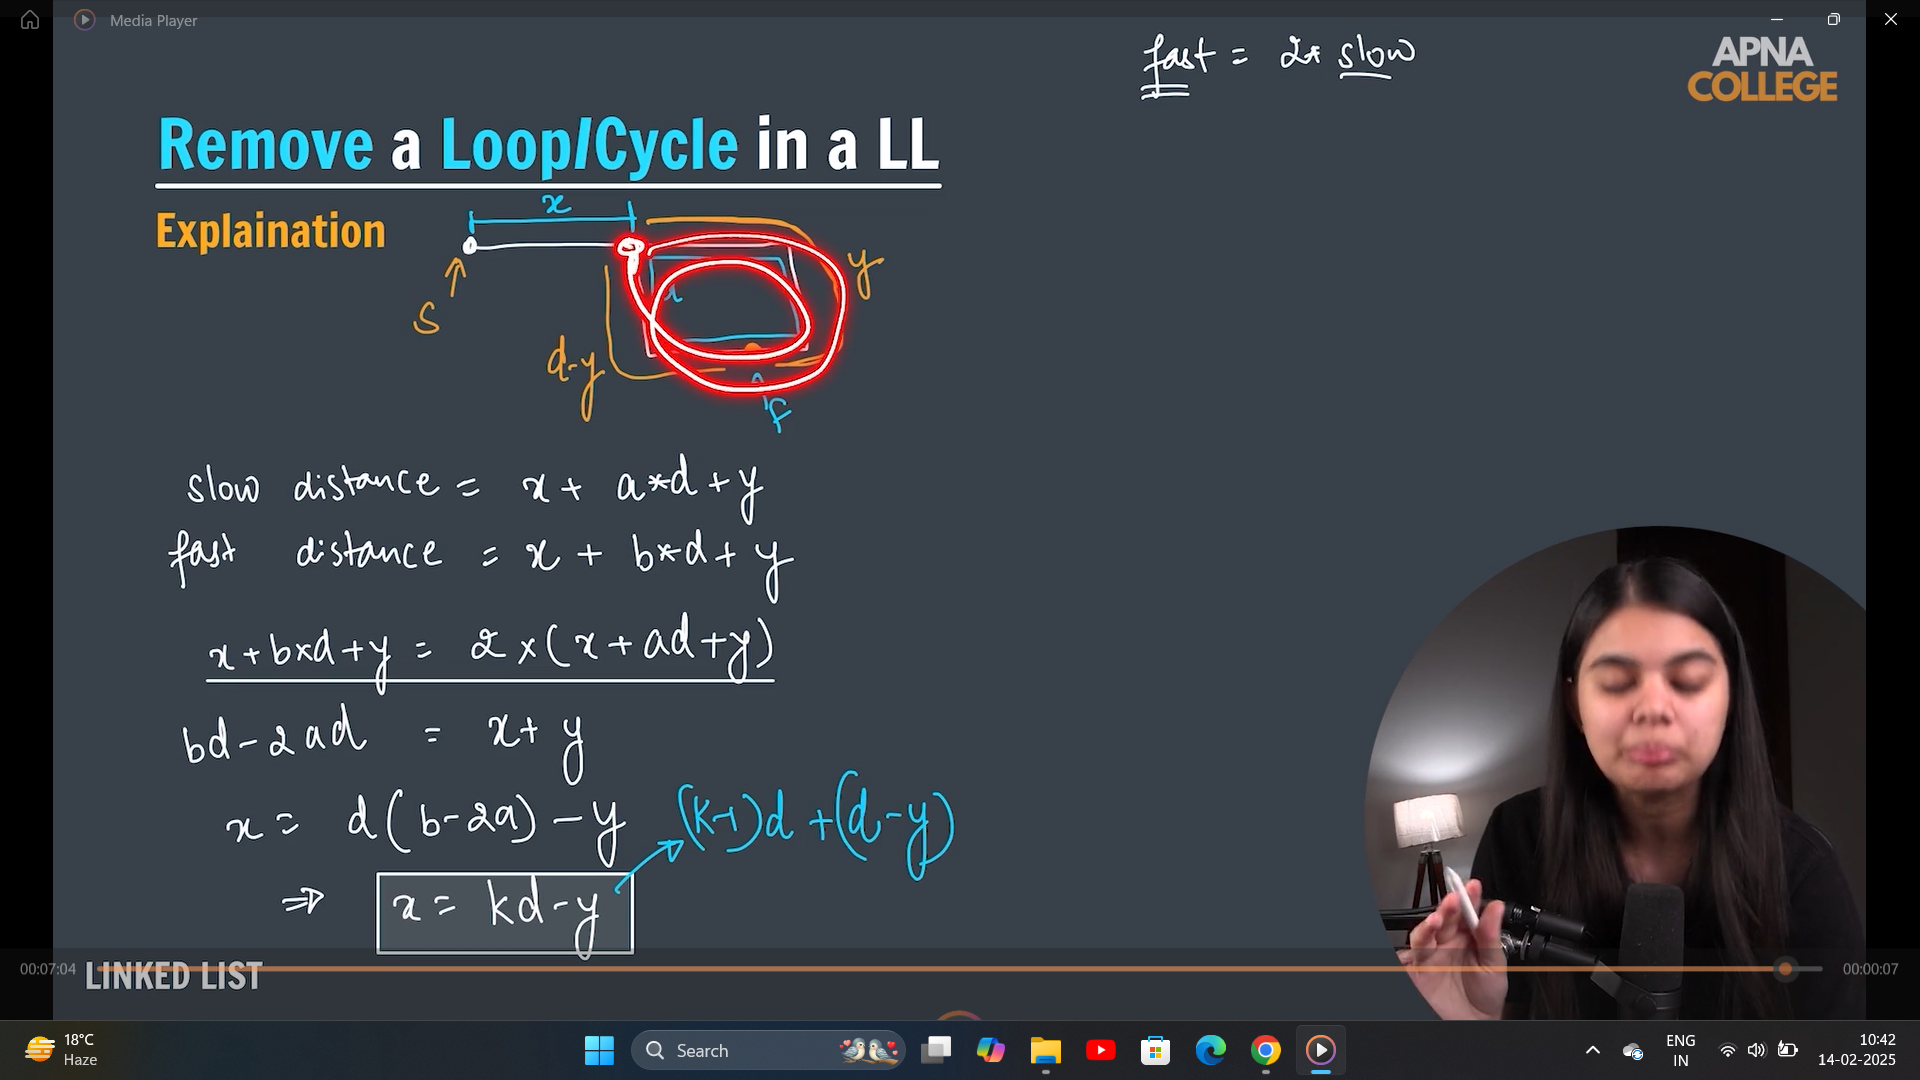 Media Player
fast = 2* slow
APNA
COLLEGE
Remove a Loop/Cycle in a LL
Explaination
x
y
x
S
d-y
F
slow distance = x + a*d + y
fast distance = x + b*d + y
x+b×d+y = 2×(x+ad+y)
bd-2ad = x+y
x = d(b-2a) - y
(k-1)d + (d-y)
⇒ x = kd-y
00:07:04
LINKED LIST
00:00:07
18°C
Haze
Search
ENG
IN
10:42
14-02-2025